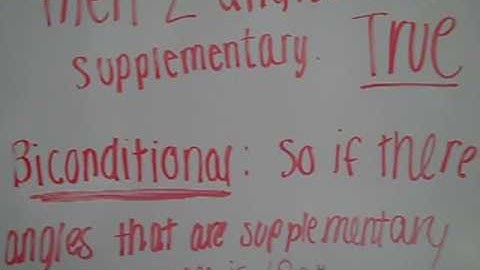 Then 2
supplementary. True
Biconditional: So if there
angles that are supplementary